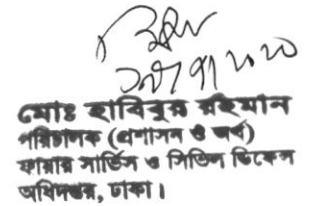 মোঃ হাবিবুর রহমান
পরিচালক (প্রশাসন ও অর্থ)
ফায়ার সার্ভিস ও সিভিল ডিফেন্স
অধিদপ্তর, ঢাকা।